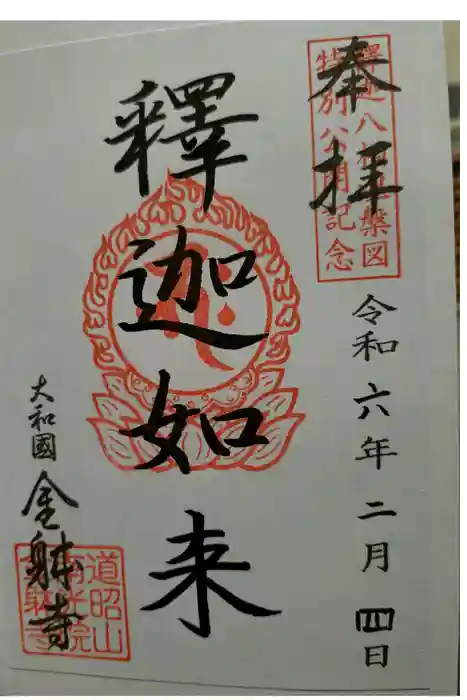 奉拝
釋迦八相涅槃図
特別公開記念
令和六年二月四日
釋迦如来
大和國
金躰寺
道昭山
南光院